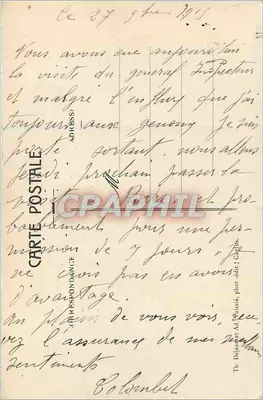 Le 27 9bre 1915
Nous avons eu aujourd'hui
la visite du general Inspecteur
et malgré l' que j'ai
toujours aux genoux je suis
porté sortant. nous allons
jeudi prochain passer la
visite et pro
bablement pour une per
mission de 7 jours. je
ne crois pas en avoir
d'avantage.
au plaisir de vous voir, rece
vez l'assurance de mes meilleurs
sentiments
Colombel
CARTE POSTALE
CORRESPONDANCE
ADRESSE
CPAPHIL